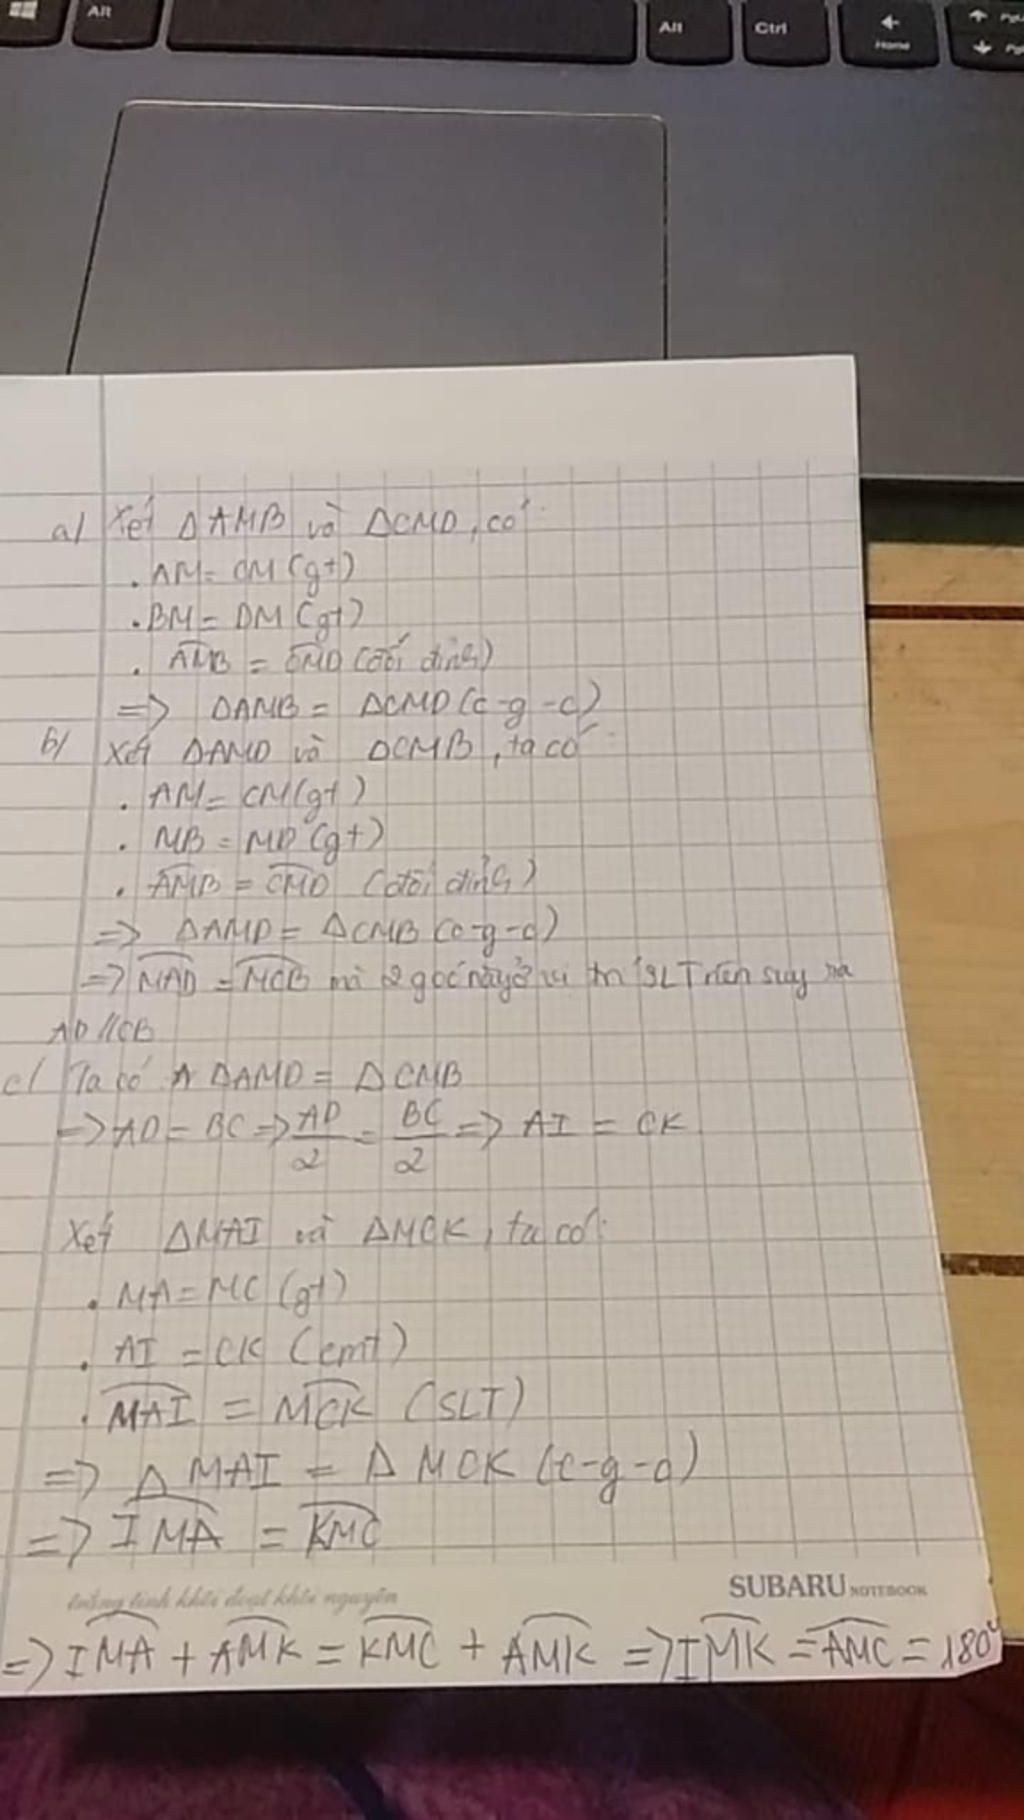 Alt
Alt
Ctrl
Home
a/ Xét ΔAMB và ΔCMD, có:
. AM = CM (gt)
. BM = DM (gt)
. AMB = CMD (đối đỉnh)
=> ΔAMB = ΔCMD (c-g-c)
b/ Xét ΔAMD và ΔCMB, ta có:
. AM = CM (gt)
. MB = MD (gt)
. AMB = CMD (đối đỉnh)
=> ΔAMD = ΔCMB (c-g-c)
=> MAD = MCB mà 2 góc này ở vị trí SLT nên suy ra
AD // CB
c/ Ta có ΔAMD = ΔCMB
=> AD = BC => AD/2 = BC/2 => AI = CK
Xét ΔMAI và ΔMCK, ta có:
. MA = MC (gt)
. AI = CK (cmt)
. MAI = MCK (SLT)
=> ΔMAI = ΔMCK (c-g-c)
=> IMA = KMC
SUBARU NOTEBOOK
=> IMA + AMK = KMC + AMK => IMK = AMC = 180°